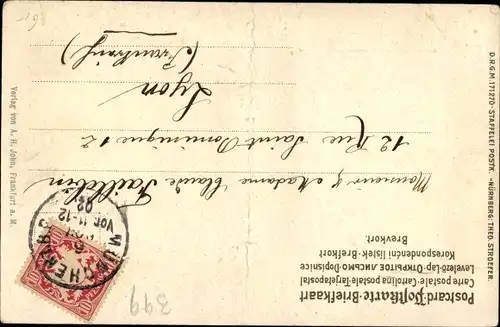 Postcard-Postkarte-Briefkaart
Carte postale-Cartolina postale-Tarjetapostal
Levelező-Lap-ОТКРЫТОЕ ПИСЬМО-Dopisnice
Korespondencni listek-Brefkort
Brevkort.
Monsieur & Madame Claude
12 Rue Saint Dominique 12
Lyon
(Frankreich)
D.R.G.M. 171270-STAFFELEI POSTK.-NÜRNBERG-THEO STROEFER.
Verlag von A. H. John, Frankfurt a. M.
MÜNCHEN
VOR. 11-12
02
10
399